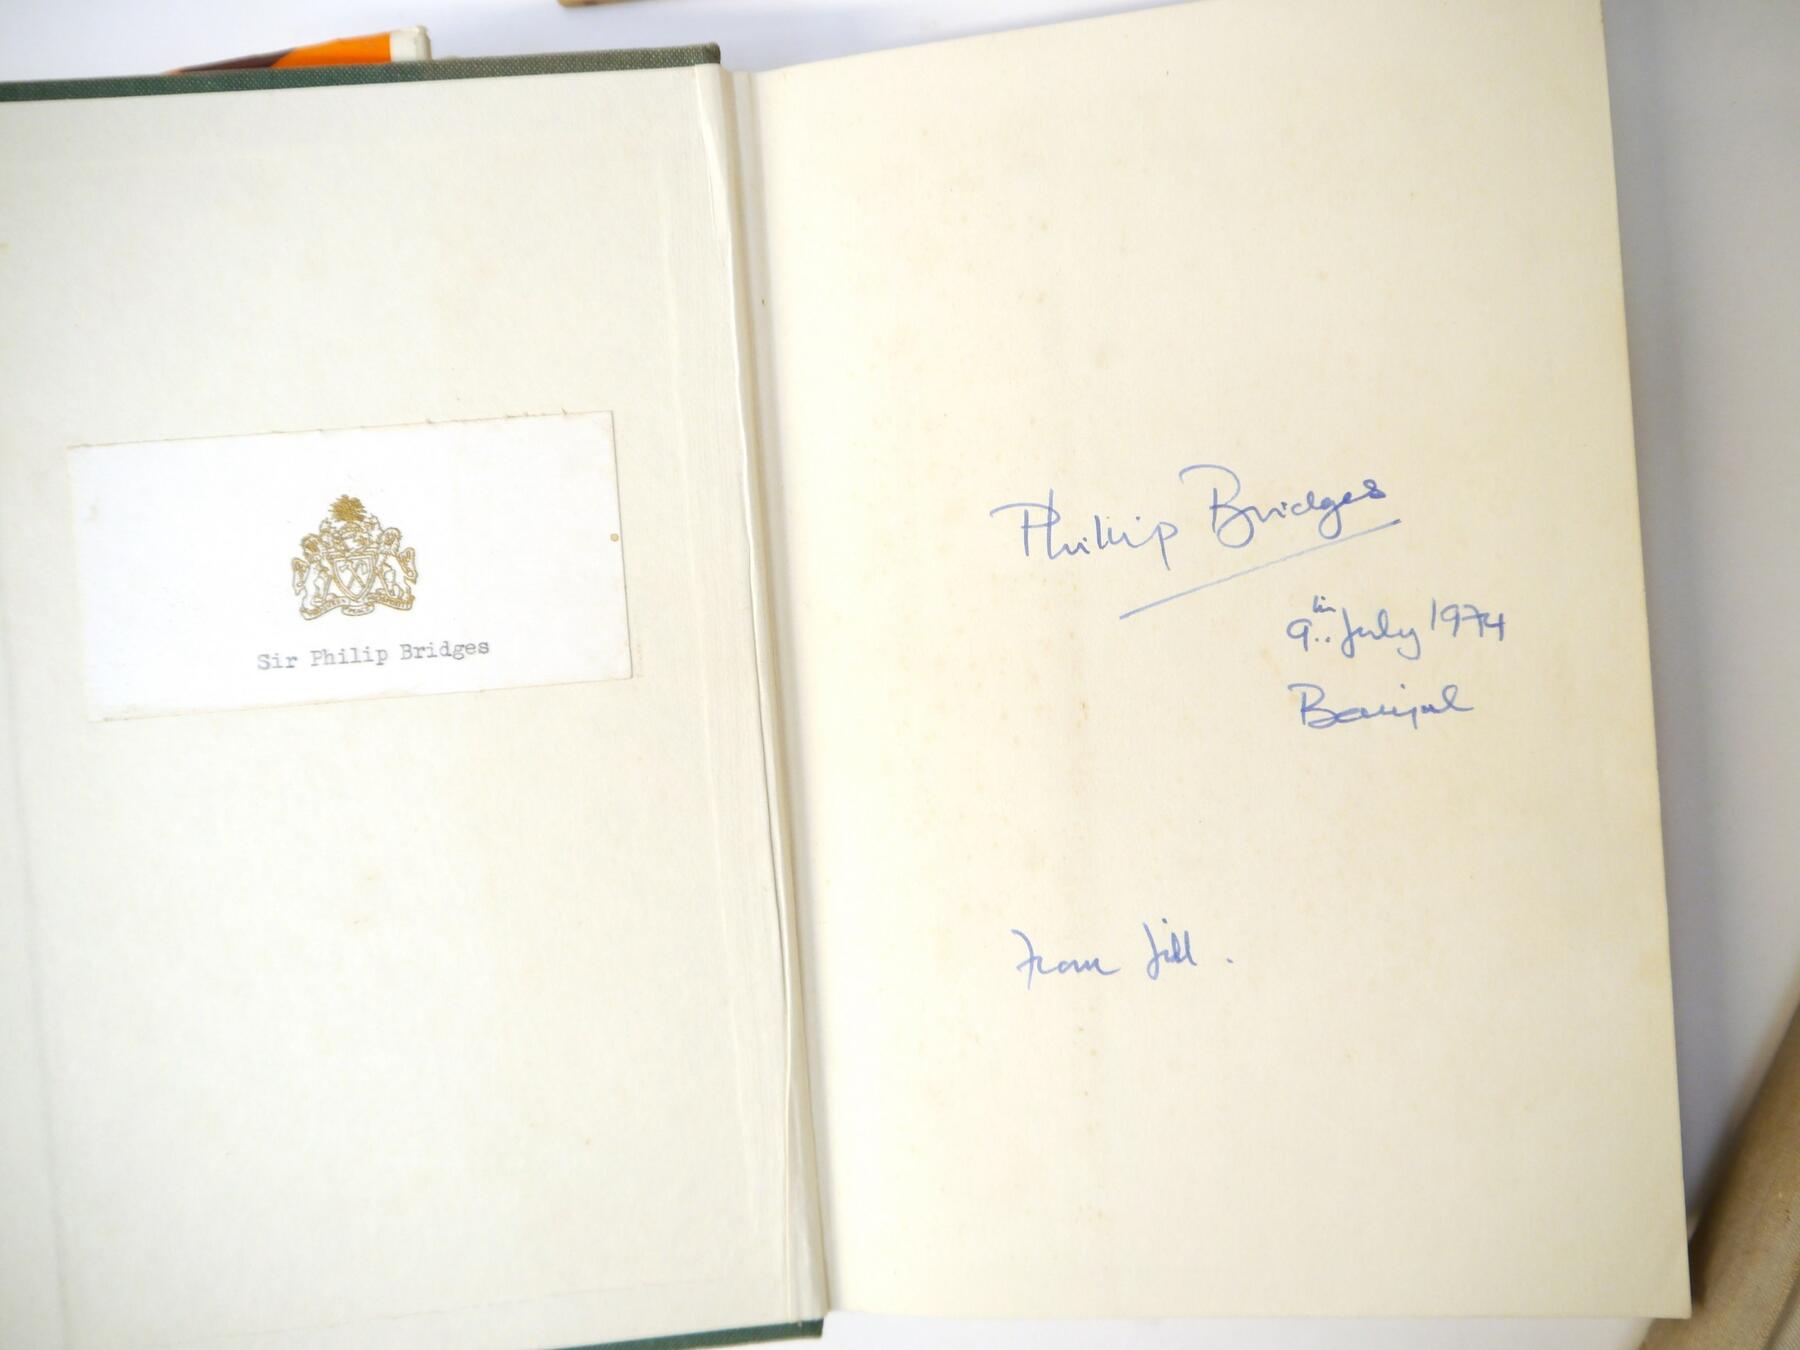 Sir Philip Bridges
Philip Bridges
9th July 1974
Banjul
From Jill.